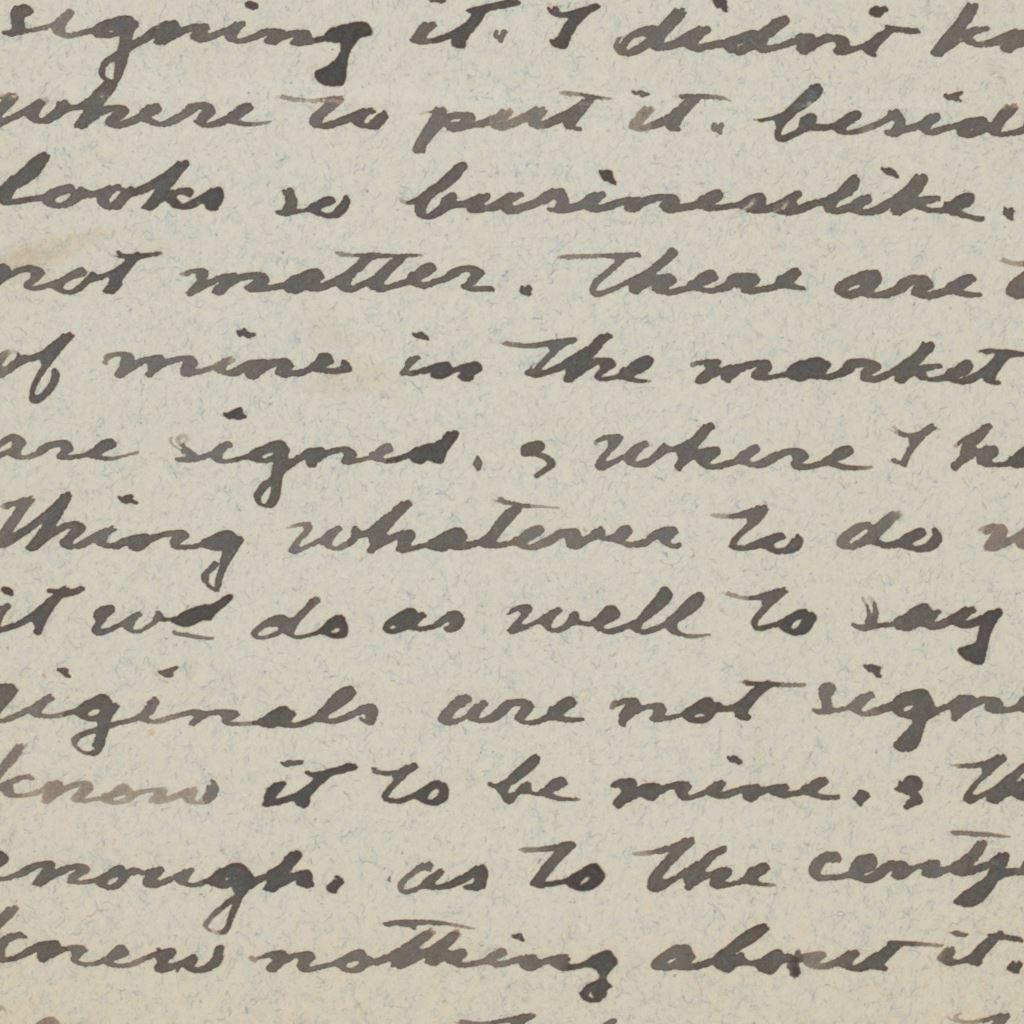 signing it. I didn't kn
where to put it. besid
looks so businesslike.
not matter. There are
of mine in the market
are signed. & where I ha
thing whatever to do w
it wd do as well to say
riginals are not signe
know it to be mine. & th
enough. as to the
knew nothing about it.